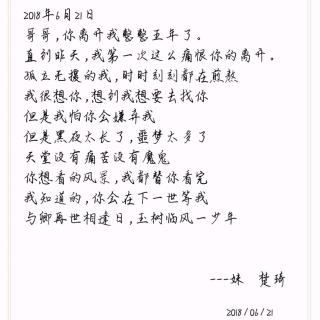 2018年6月21日
哥哥，你离开我整整五年了。
直到昨天，我第一次这么痛恨你的离开。
孤立无援的我，时时刻刻都在煎熬
我很想你，想到我想要去找你
但是我怕你会嫌弃我
但是黑夜太长了，噩梦太多了
天堂没有痛苦没有魔鬼
你想看的风景，我都替你看完
我知道的，你会在下一世等我
与卿再世相逢日，玉树临风一少年
---妹 楚琦
2018/06/21